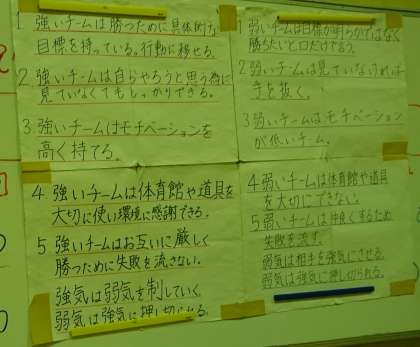 1 強いチームは勝つために具体的な
目標を持っている。行動に移せる。
2 強いチームは自らやろうと思う為に
見ていなくてもしっかりできる。
3 強いチームはモチベーションを
高く持てる。
4 強いチームは体育館や道具を
大切に使い環境に感謝できる。
5 強いチームはお互いに厳しく
勝つために失敗を流さない。
強気は弱気を制していく。
弱気は強気に押し切られる。
1 弱いチームは目標が明らかではなく
勝ちたいと口だけで言う。
2 弱いチームは見ていなければ
手を抜く。
3 弱いチームはモチベーション
が低いチーム。
4 弱いチームは体育館や道具
を大切にできない。
5 弱いチームは仲良くするため
失敗を流す。
弱気は相手を強気にさせる。
弱気は強気に押し切られる。